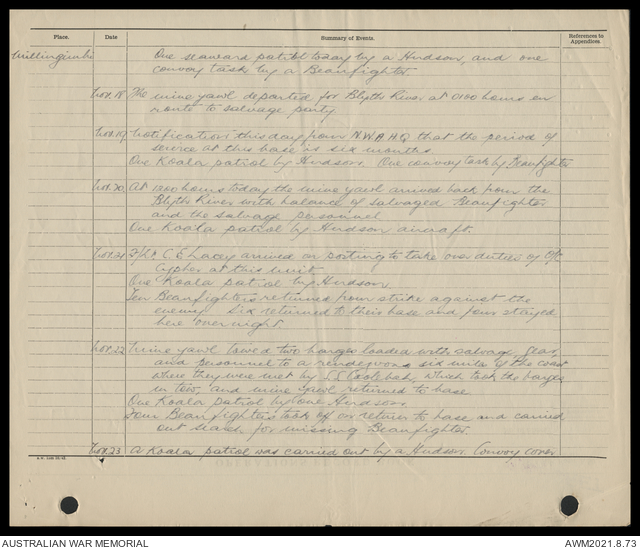 Place. Date Summary of Events. References to Appendices
Millingimbi One seaward patrol today by a Hudson, and one
convoy task by a Beaufighter
Nov. 18 The mine yawl departed for Blyth River at 0100 hours en
route to salvage party
Nov. 19 Notification this day from N.W.A.H.Q. that the period of
service at this base is six months.
One Koala patrol by Hudson. One convoy task by Beaufighter
Nov. 20. At 1200 hours today the mine yawl arrived back from the
Blyth River with balance of salvaged Beaufighter
and the salvage personnel
One Koala patrol by Hudson aircraft.
Nov. 21 F/Lt C. E. Lacey arrived on posting to take over duties of O/C
Cypher at this unit.
One Koala patrol by Hudson
Ten Beaufighters returned from strike against the
enemy. Six returned to their base and four stayed
here overnight.
Nov. 22 Mine yawl towed two barges loaded with salvage gear
and personnel to a rendezvous six miles off the coast
where they were met by S.S. which took the barges
in tow, and mine yawl returned to base
One Koala patrol by one Hudson.
Four Beaufighters took off on return to base and carried
out search for missing Beaufighter.
Nov. 23 A Koala patrol was carried out by a Hudson. Convoy cover
AUSTRALIAN WAR MEMORIAL AWM2021.8.73